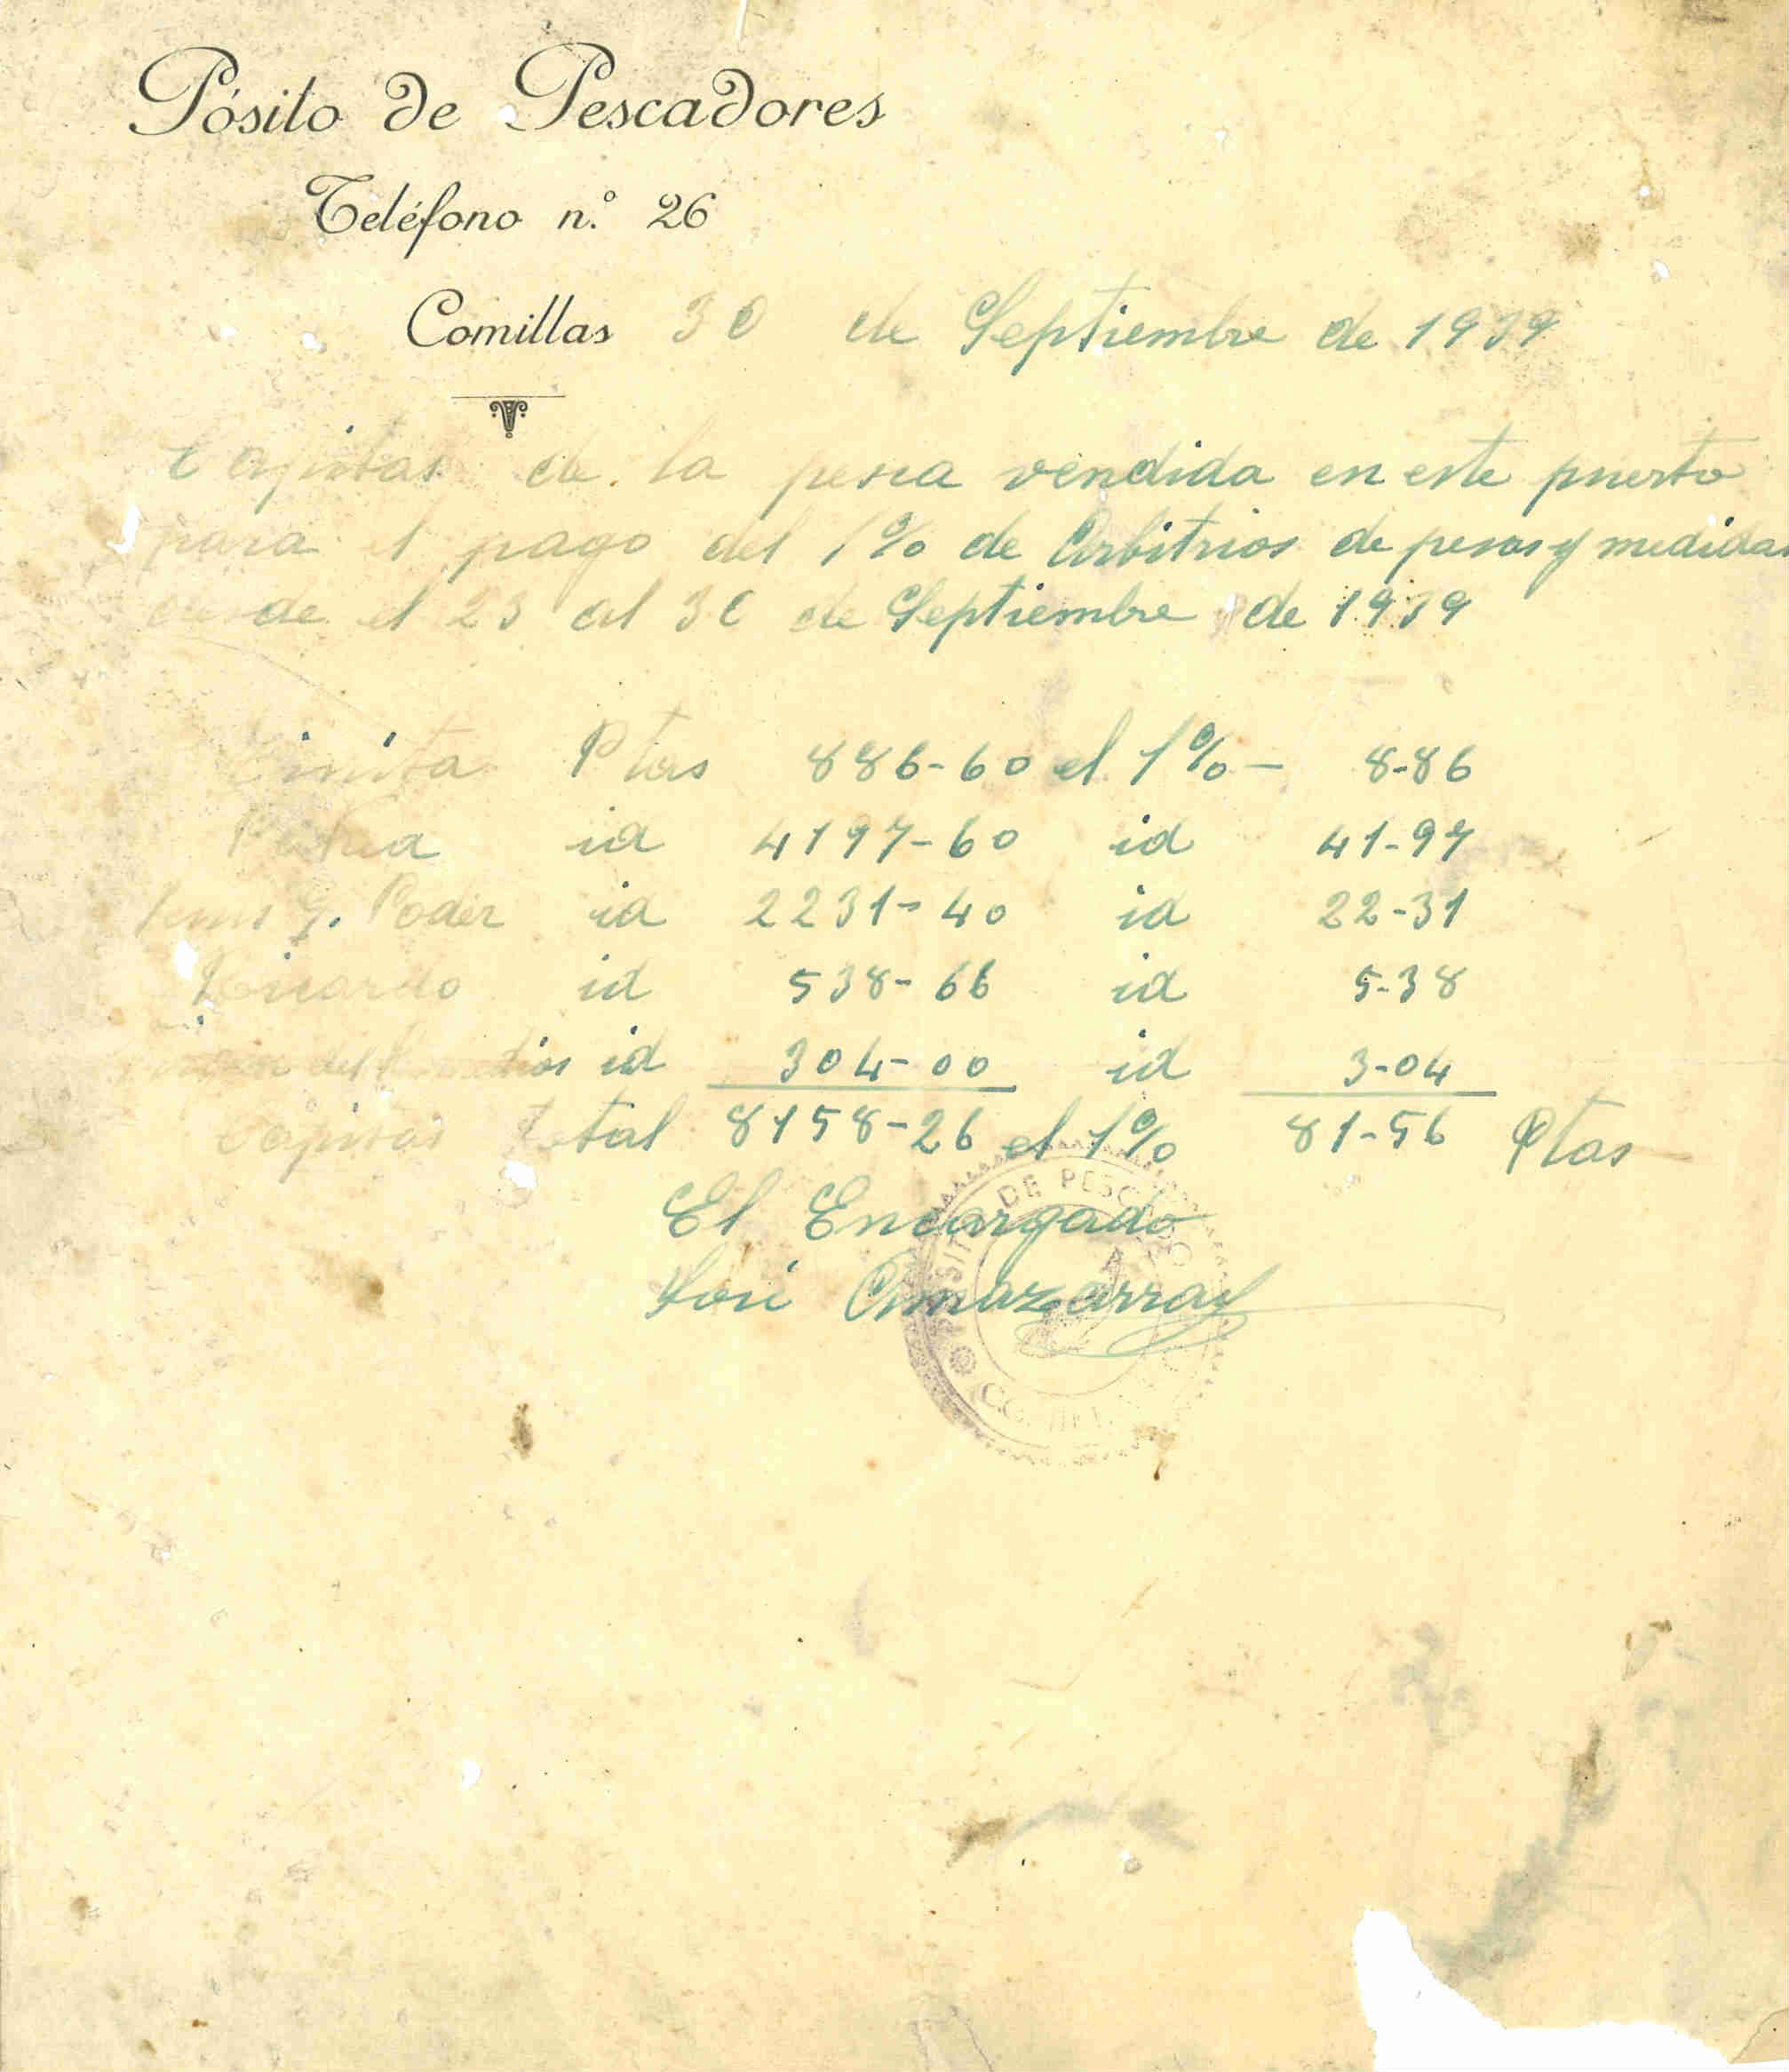 Pósito de Pescadores
Teléfono n.º 26
Comillas 30 de Septiembre de 1939
Capitas de la pesca vendida en este puerto
para el pago del 1% de Arbitrios de pesas y medidas
desde el 23 al 30 de Septiembre de 1939
Ptas 886-60 el 1% - 8-86
id 4197-60 id 41-97
Jesus G. Poder id 2231-40 id 22-31
Ricardo id 538-66 id 5-38
del id 304-00 id 3-04
Capitas total 8158-26 el 1% 81-56 Ptas
El Encargado
José Amazarray
PÓSITO DE PESCADO
CO